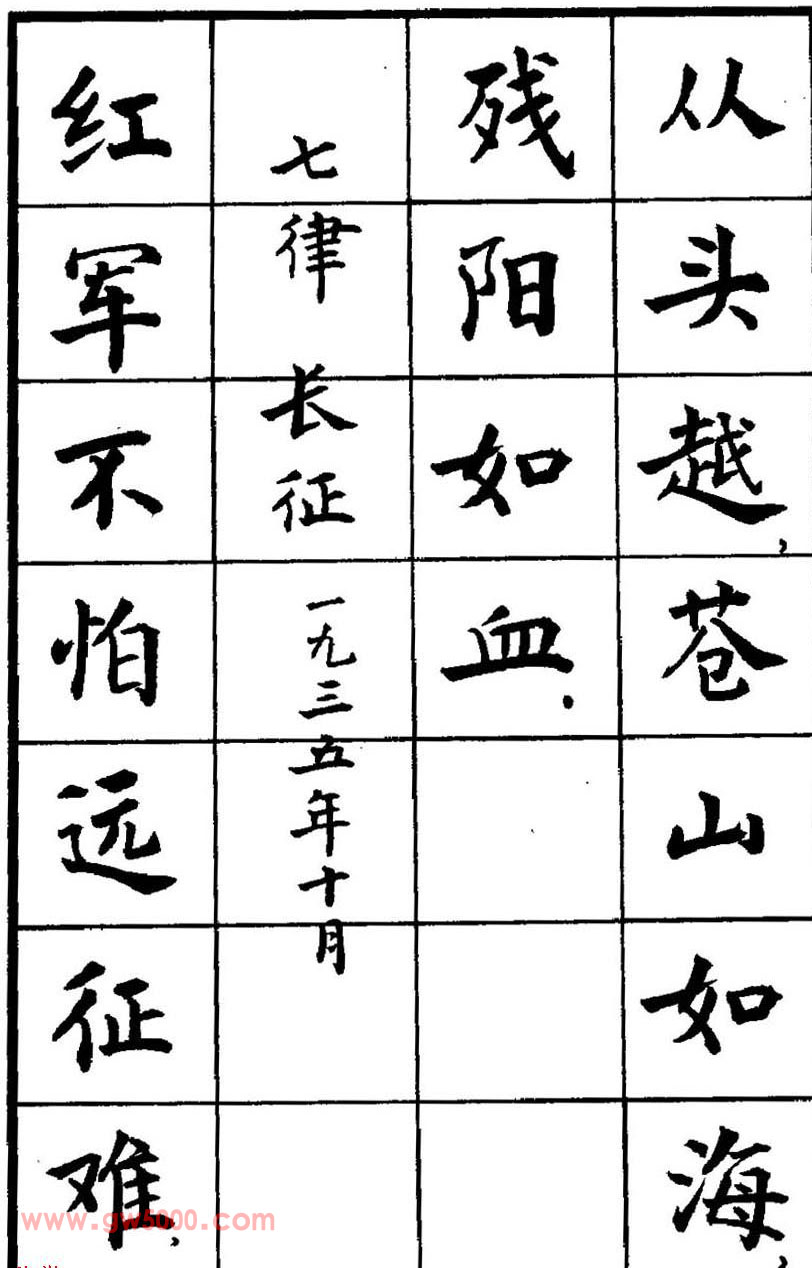 从头越，苍山如海，
残阳如血．
七律 长征 一九三五年十月
红军不怕远征难，
www.gw5000.com